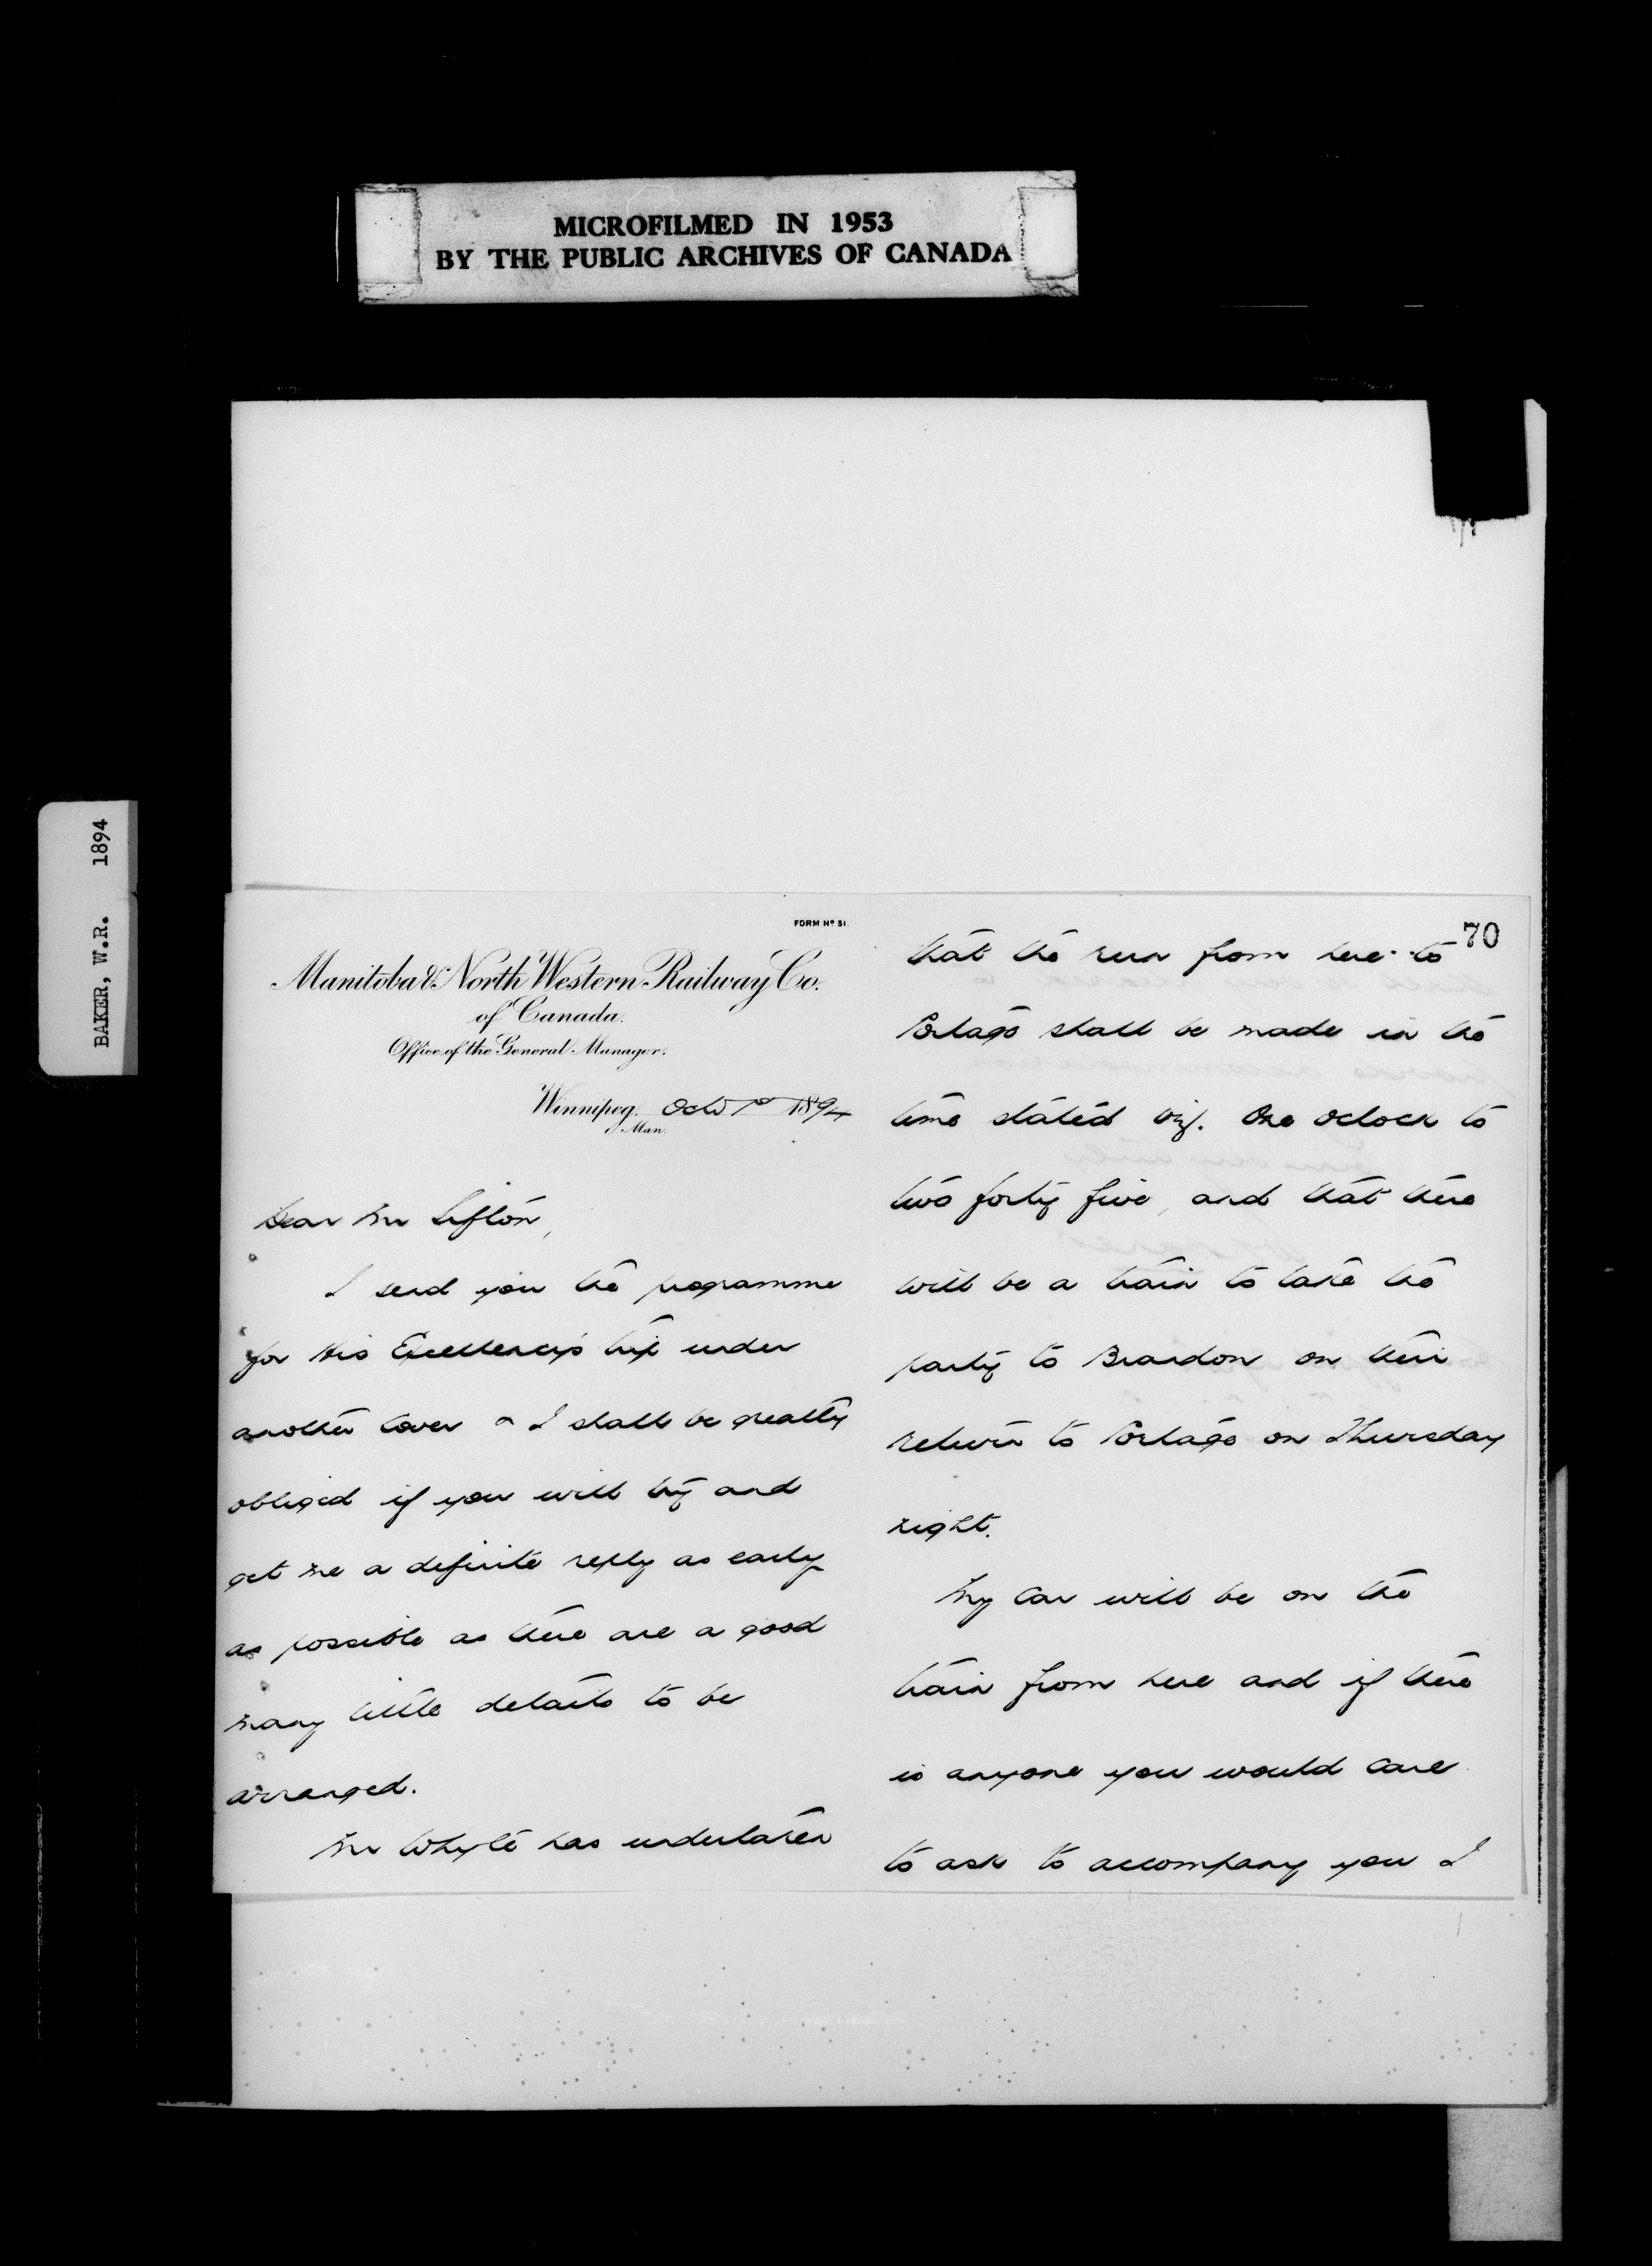 MICROFILMED IN 1953
BY THE PUBLIC ARCHIVES OF CANADA
BAKER, W.R. 1894
FORM Nº 31.
Manitoba & North Western Railway Co.
of Canada.
Office of the General Manager.
Winnipeg, Octo 1st 1894
Man.
Dear Mr Sifton,
I send you the programme
for His Excellency's trip under
another cover & I shall be greatly
obliged if you will try and
get me a definite reply as early
as possible as there are a good
many little details to be
arranged.
Mr Whyte has undertaken
70
that the run from here to
Portage shall be made in the
time stated viz. One oclock to
two forty five, and that there
will be a train to take the
party to Brandon on their
return to Portage on Thursday
night.
My Car will be on the
train from here and if there
is anyone you would care
to ask to accompany you I